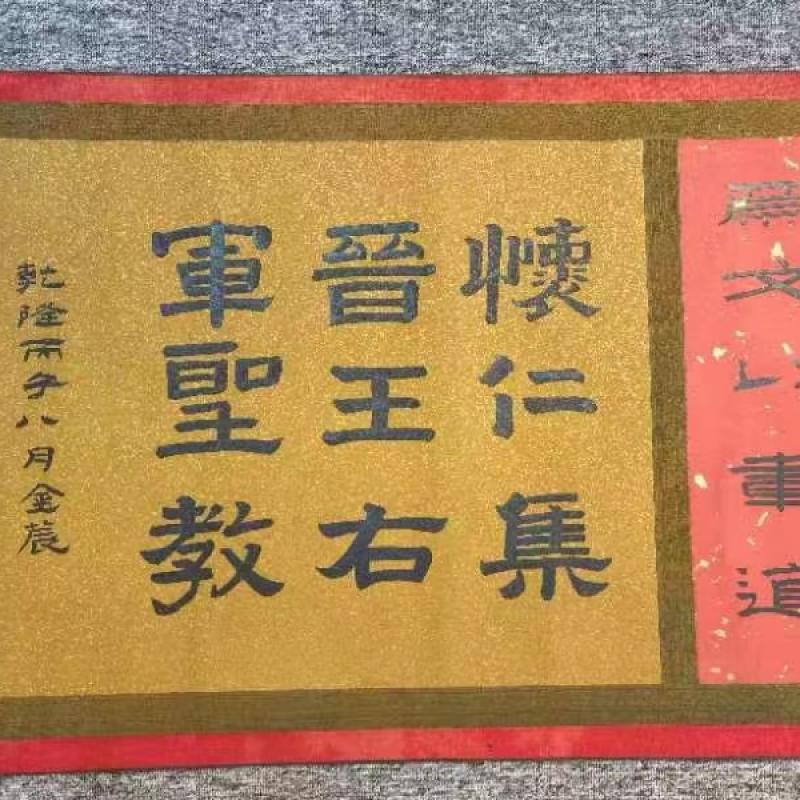 為文以車道
懷仁集
晉王右
軍聖教
乾隆丙子八月金農